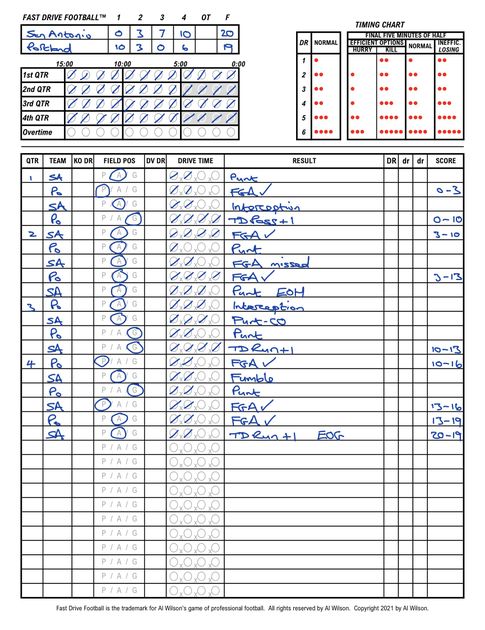 FAST DRIVE FOOTBALL™ 1 2 3 4 OT F
San Antonio 0 3 7 10 20
Portland 10 3 0 6 19
15:00 10:00 5:00 0:00
1st QTR
2nd QTR
3rd QTR
4th QTR
Overtime
TIMING CHART
FINAL FIVE MINUTES OF HALF
DR NORMAL EFFICIENT OPTIONS NORMAL INEFFIC. LOSING
HURRY KILL
1
2
3
4
5
6
QTR TEAM KO DR FIELD POS DV DR DRIVE TIME RESULT DR dr dr SCORE
1 SA P / A / G Punt
Po P / A / G FGA ✓ 0-3
SA P / A / G Interception
Po P / A / G TD Pass +1 0-10
2 SA P / A / G FGA ✓ 3-10
Po P / A / G Punt
SA P / A / G FGA missed
Po P / A / G FGA ✓ 3-13
SA P / A / G Punt EOH
3 Po P / A / G Interception
SA P / A / G Punt-CO
Po P / A / G Punt
SA P / A / G TD Run +1 10-13
4 Po P / A / G FGA ✓ 10-16
SA P / A / G Fumble
Po P / A / G Punt
SA P / A / G FGA ✓ 13-16
Po P / A / G FGA ✓ 13-19
SA P / A / G TD Run +1 EOG 20-19
P / A / G
P / A / G
P / A / G
P / A / G
P / A / G
P / A / G
P / A / G
P / A / G
P / A / G
P / A / G
P / A / G
Fast Drive Football is the trademark for Al Wilson's game of professional football. All rights reserved by Al Wilson. Copyright 2021 by Al Wilson.